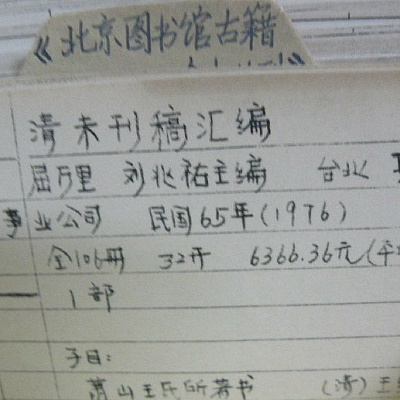 《北京图书馆古籍
清未刊稿汇编
屈万里 刘兆祐主编 台北
事业公司 民国65年(1976)
全106册 32开 6366.36元(平
1部
子目:
萧山王氏所著书 (清)王